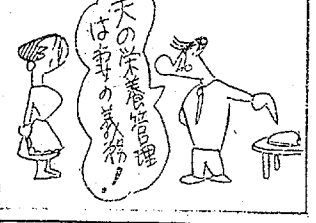 夫の栄養管理
は妻の義務!